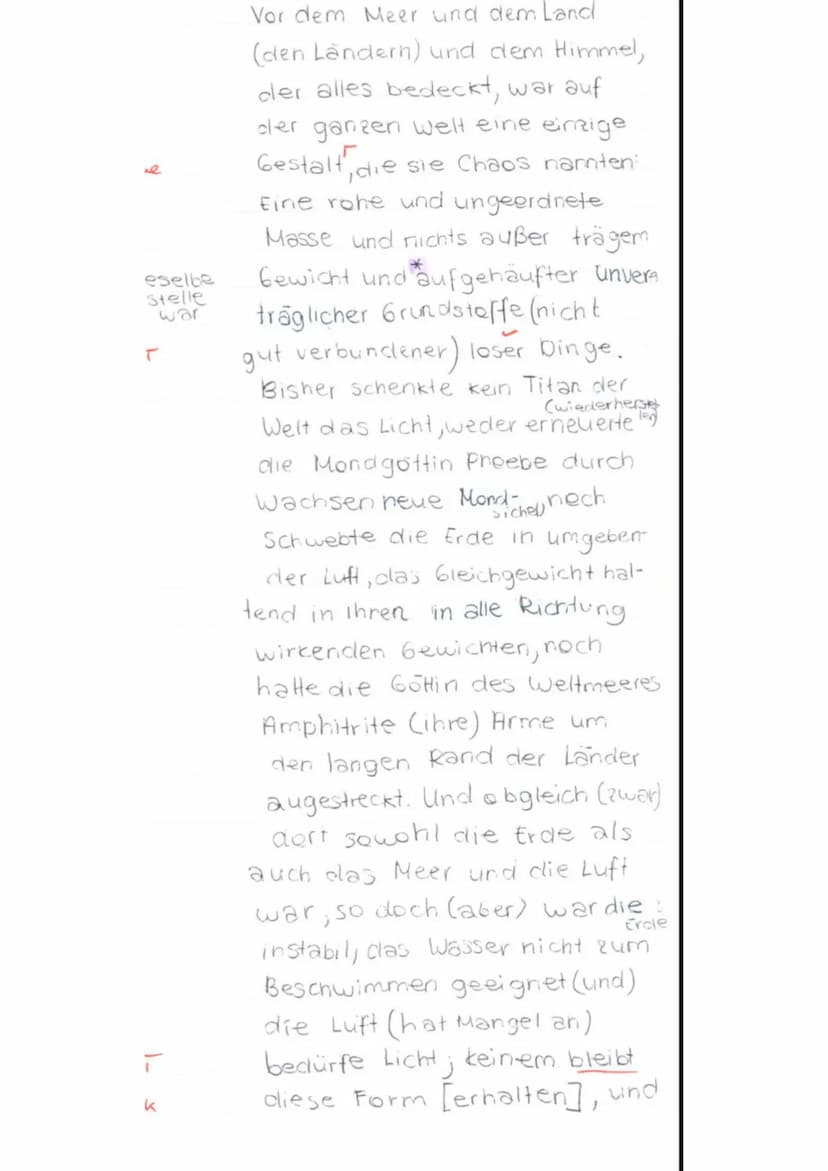 Vor dem Meer und dem Land
(den Ländern) und dem Himmel,
der alles bedeckt, war auf
der ganzen Welt eine einzige
e Gestalt, die sie Chaos nannten:
Eine rohe und ungeordnete
Masse und nichts außer trägem
eselbe Gewicht und * aufgehäufter unver
stelle
war träglicher Grundstoffe (nicht
r gut verbundener) loser Dinge.
Bisher schenkte kein Titan der
(wiederherstel
len)
Welt das Licht, weder erneuerte
die Mondgöttin Phoebe durch
Wachsen neue Mond-
sichel, noch
Schwebte die Erde in umgeben-
der Luft, das Gleichgewicht hal-
tend in ihren in alle Richtung
wirkenden Gewichten, noch
hatte die Göttin des Weltmeeres
Amphitrite (ihre) Arme um
den langen Rand der Länder
augestreckt. Und obgleich (zwar)
dort sowohl die Erde als
auch das Meer und die Luft
war, so doch (aber) war die
Erde
instabil, das Wasser nicht zum
Beschwimmen geeignet (und)
die Luft (hat Mangel an)
T bedürfe Licht; keinem bleibt
k diese Form [erhalten], und